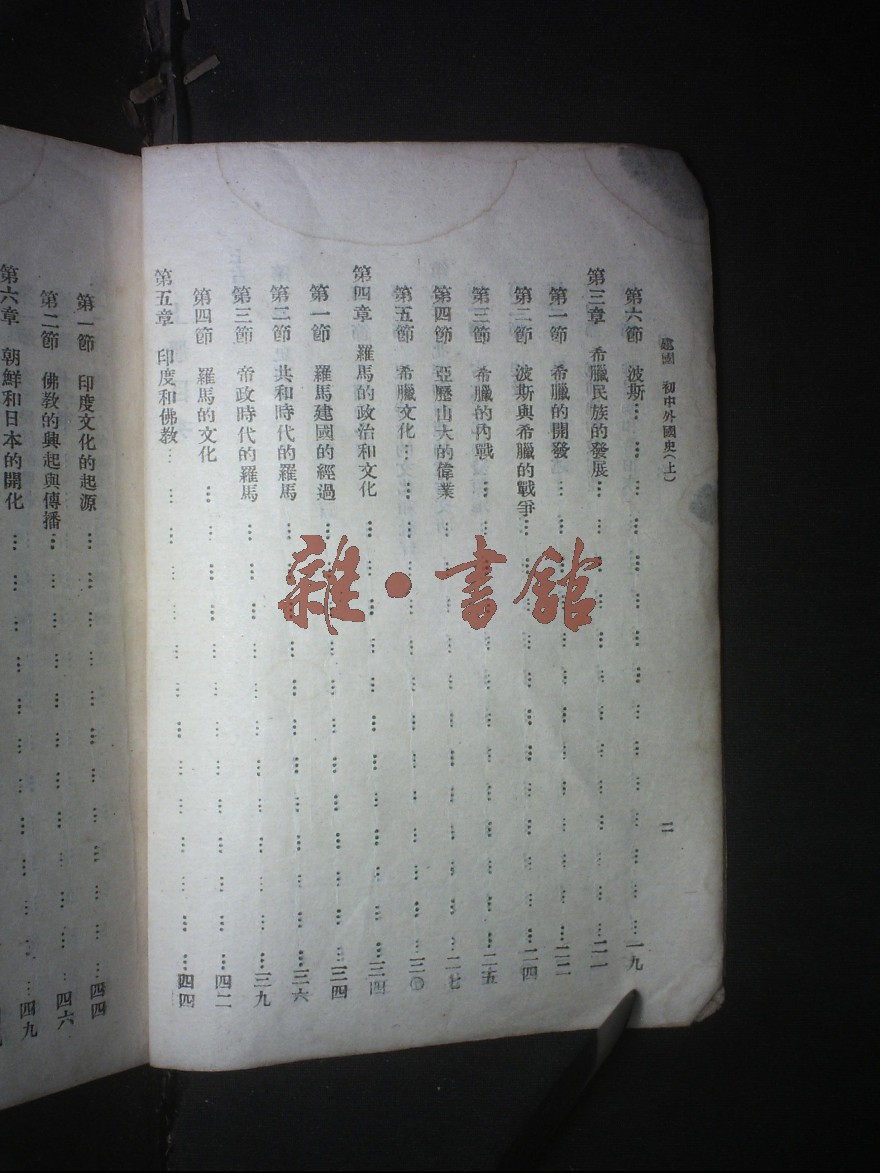 建國 初中外國史(上)
二
第六節 波斯……一九
第三章 希臘民族的發展……二一
第一節 希臘的開發……二二
第二節 波斯與希臘的戰爭……二四
第三節 希臘的內戰……二五
第四節 亞歷山大的偉業……二七
第五節 希臘文化……三〇
第四章 羅馬的政治和文化……三四
第一節 羅馬建國的經過……三四
第二節 共和時代的羅馬……三六
第三節 帝政時代的羅馬……三九
第四節 羅馬的文化……四二
第五章 印度和佛教……四四
第一節 印度文化的起源……四四
第二節 佛教的興起與傳播……四六
第六章 朝鮮和日本的開化……四九
雜·書館